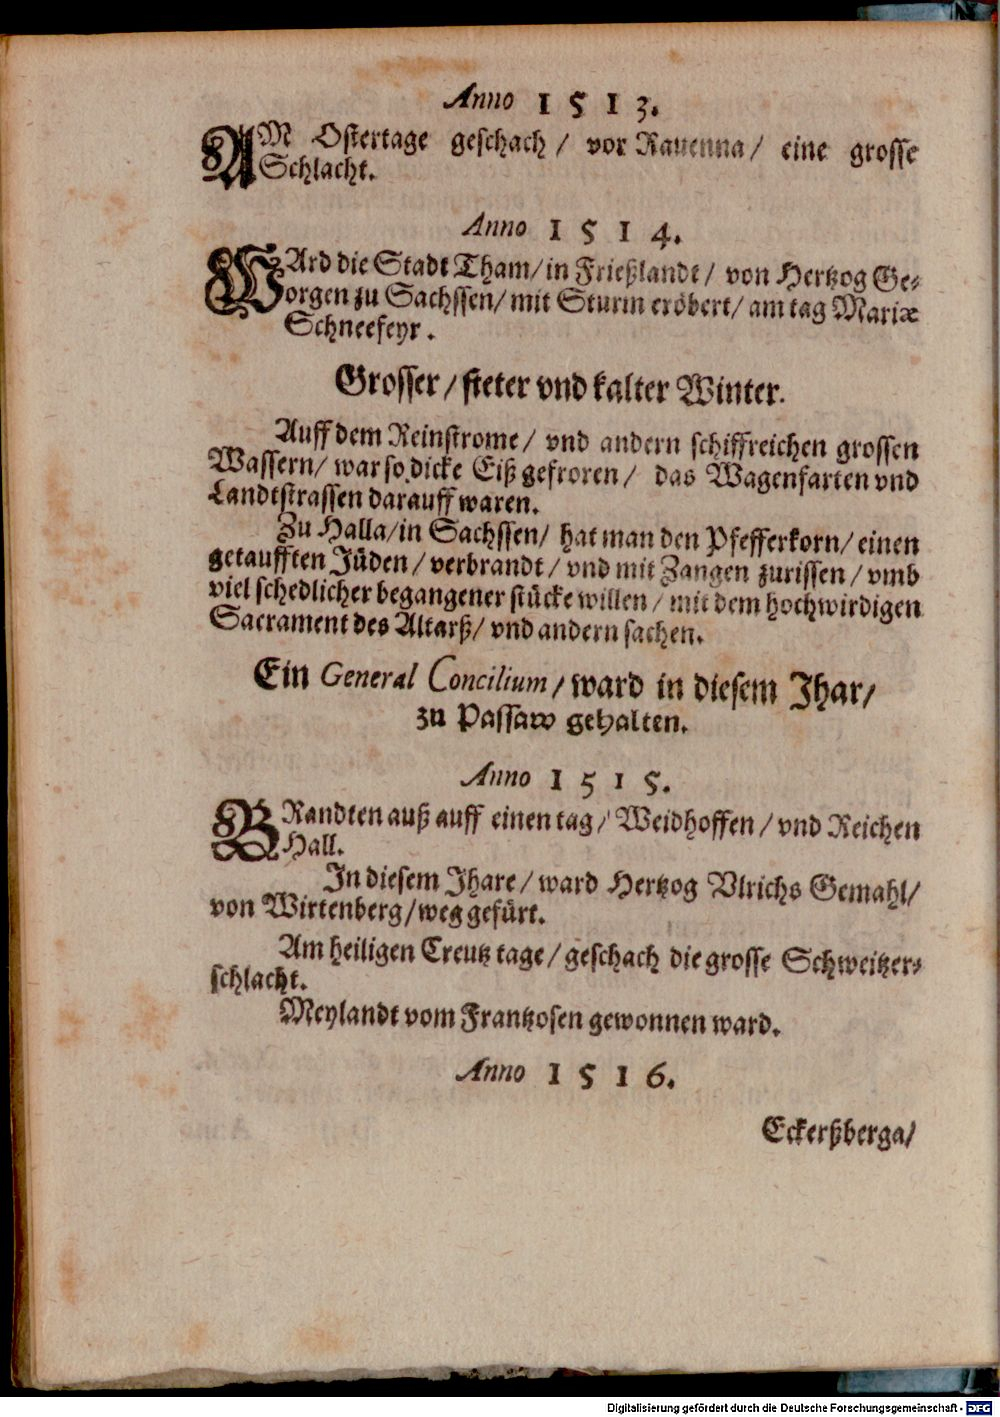 Anno 1 5 1 3.
AM Ostertage geschach / vor Rauenna / eine grosse
Schlacht.
Anno 1 5 1 4.
WArd die Stadt Tham / in Frießlandt / von Hertzog Ge-
orgen zu Sachssen / mit Sturm eröbert / am tag Mariæ
Schneefeyr.
Grosser / steter vnd kalter Winter.
Auff dem Reinstrome / vnd andern schiffreichen grossen
Wassern / war so dicke Eiß gefroren / das Wagenfarten vnd
Landtstrassen darauff waren.
Zu Halla / in Sachssen / hat man den Pfefferkorn / einen
getaufften Jüden / verbrandt / vnd mit Zangen zurissen / vmb
viel schedlicher begangener stücke willen / mit dem hochwirdigen
Sacrament des Altarß / vnd andern sachen.
Ein General Concilium / ward in diesem Jhar /
zu Passaw gehalten.
Anno 1 5 1 5.
BRandten auß auff einen tag / Weidhoffen / vnd Reichen
Hall.
In diesem Jhare / ward Hertzog Vlrichs Gemahl /
von Wirtenberg / weggefürt.
Am heiligen Creutz tage / geschach die grosse Schweitzer-
schlacht.
Meylandt vom Frantzosen gewonnen ward.
Anno 1 5 1 6.
Eckerßberga /
Digitalisierung gefördert durch die Deutsche Forschungsgemeinschaft - DFG